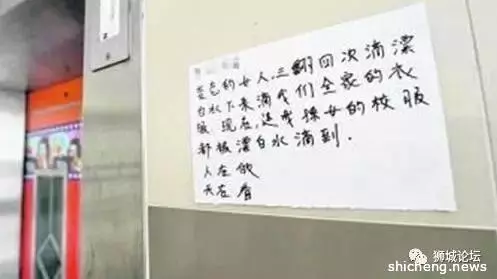 变态的女人,三翻四次滴漂
白水下来滴我们全家的衣
服.现在,连我孙女的校服
都被漂白水滴到.
人在做
天在看
狮城论坛
shicheng.news